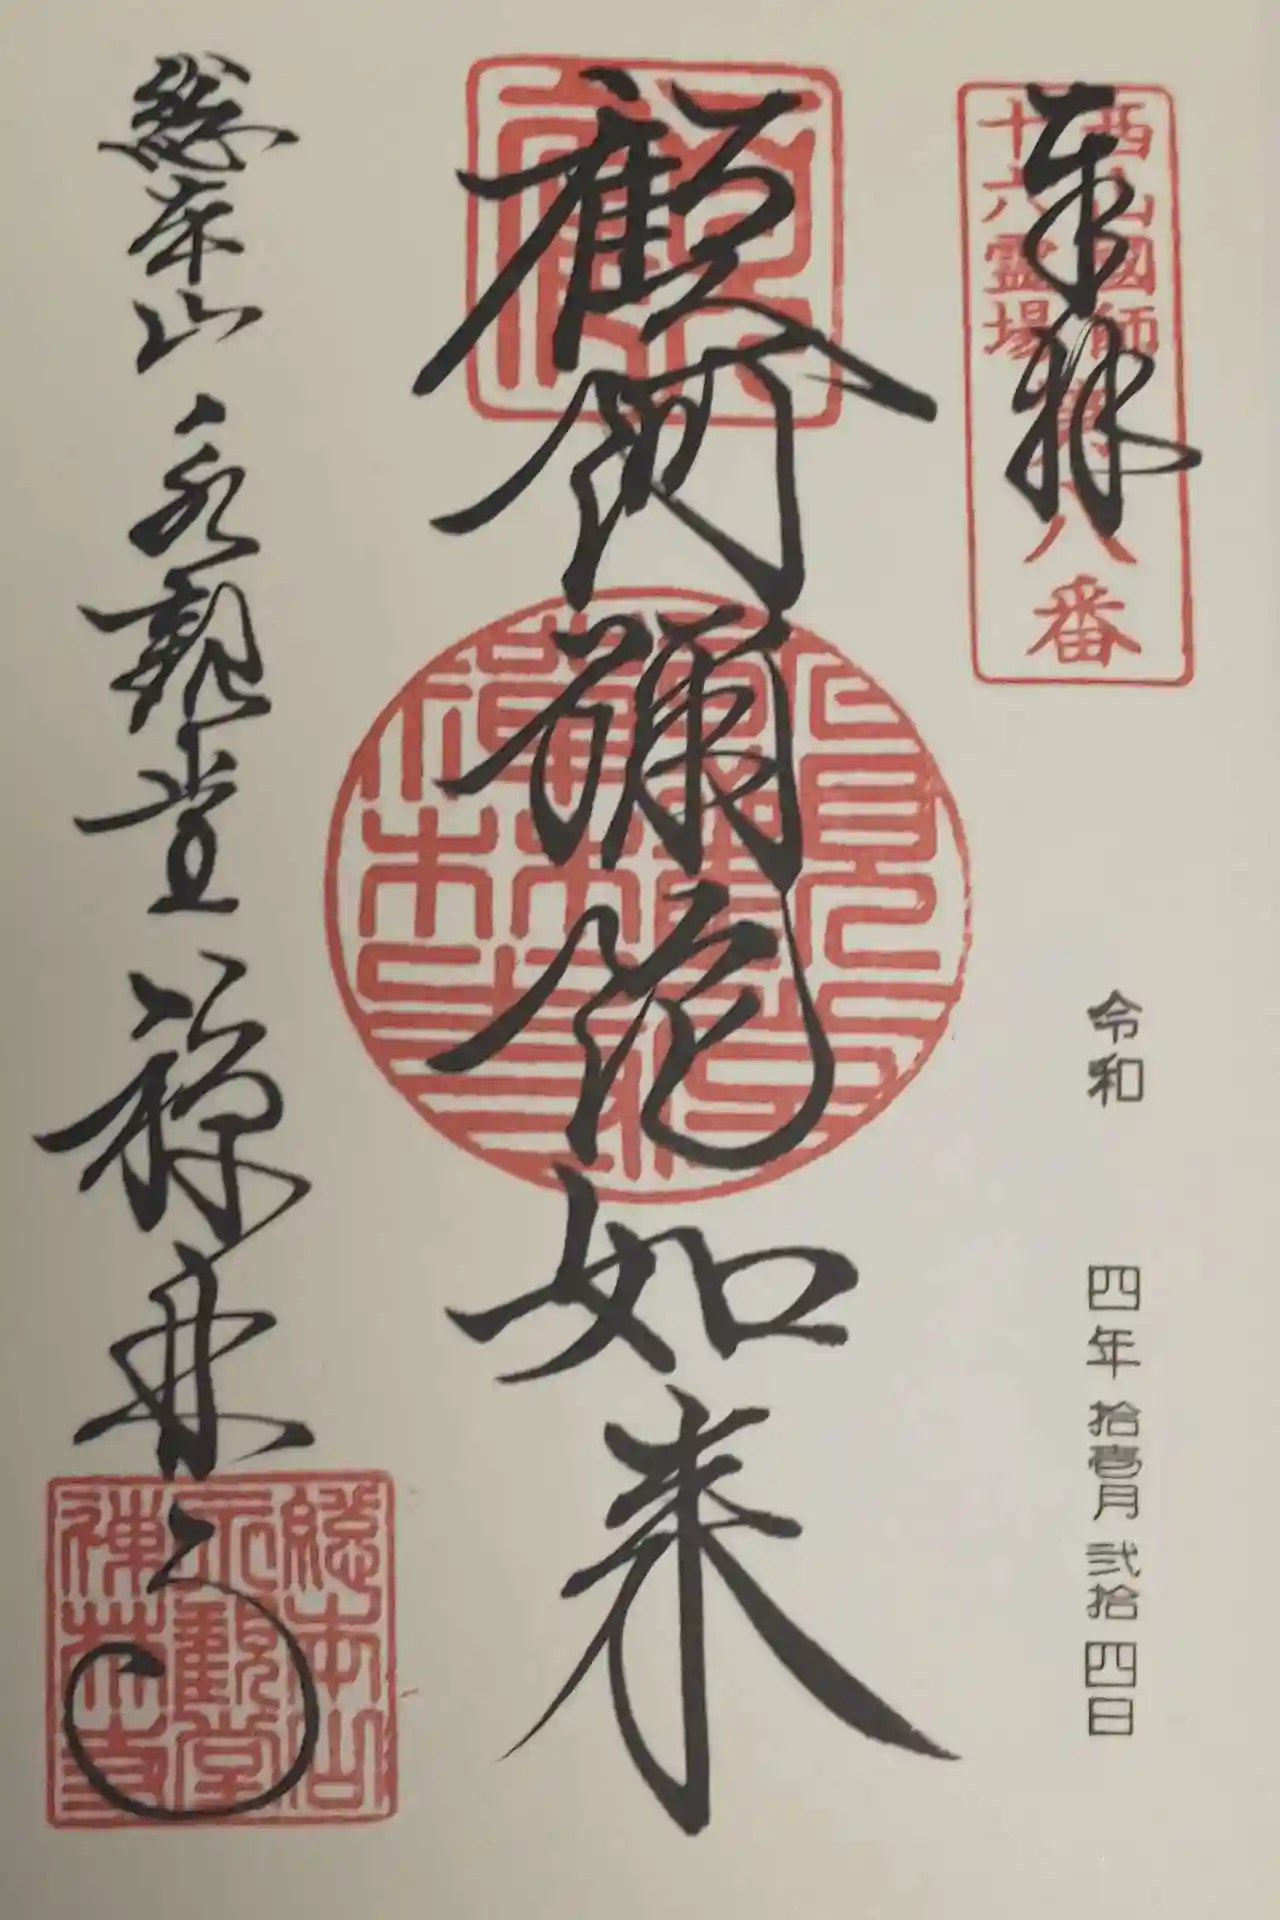 奉拝
西山國師
十六霊場
第八番
令和 四年 拾壱月 弐拾四日
顧阿彌陀如来
総本山 永観堂 禅林寺
総本山
永觀堂
禅林寺